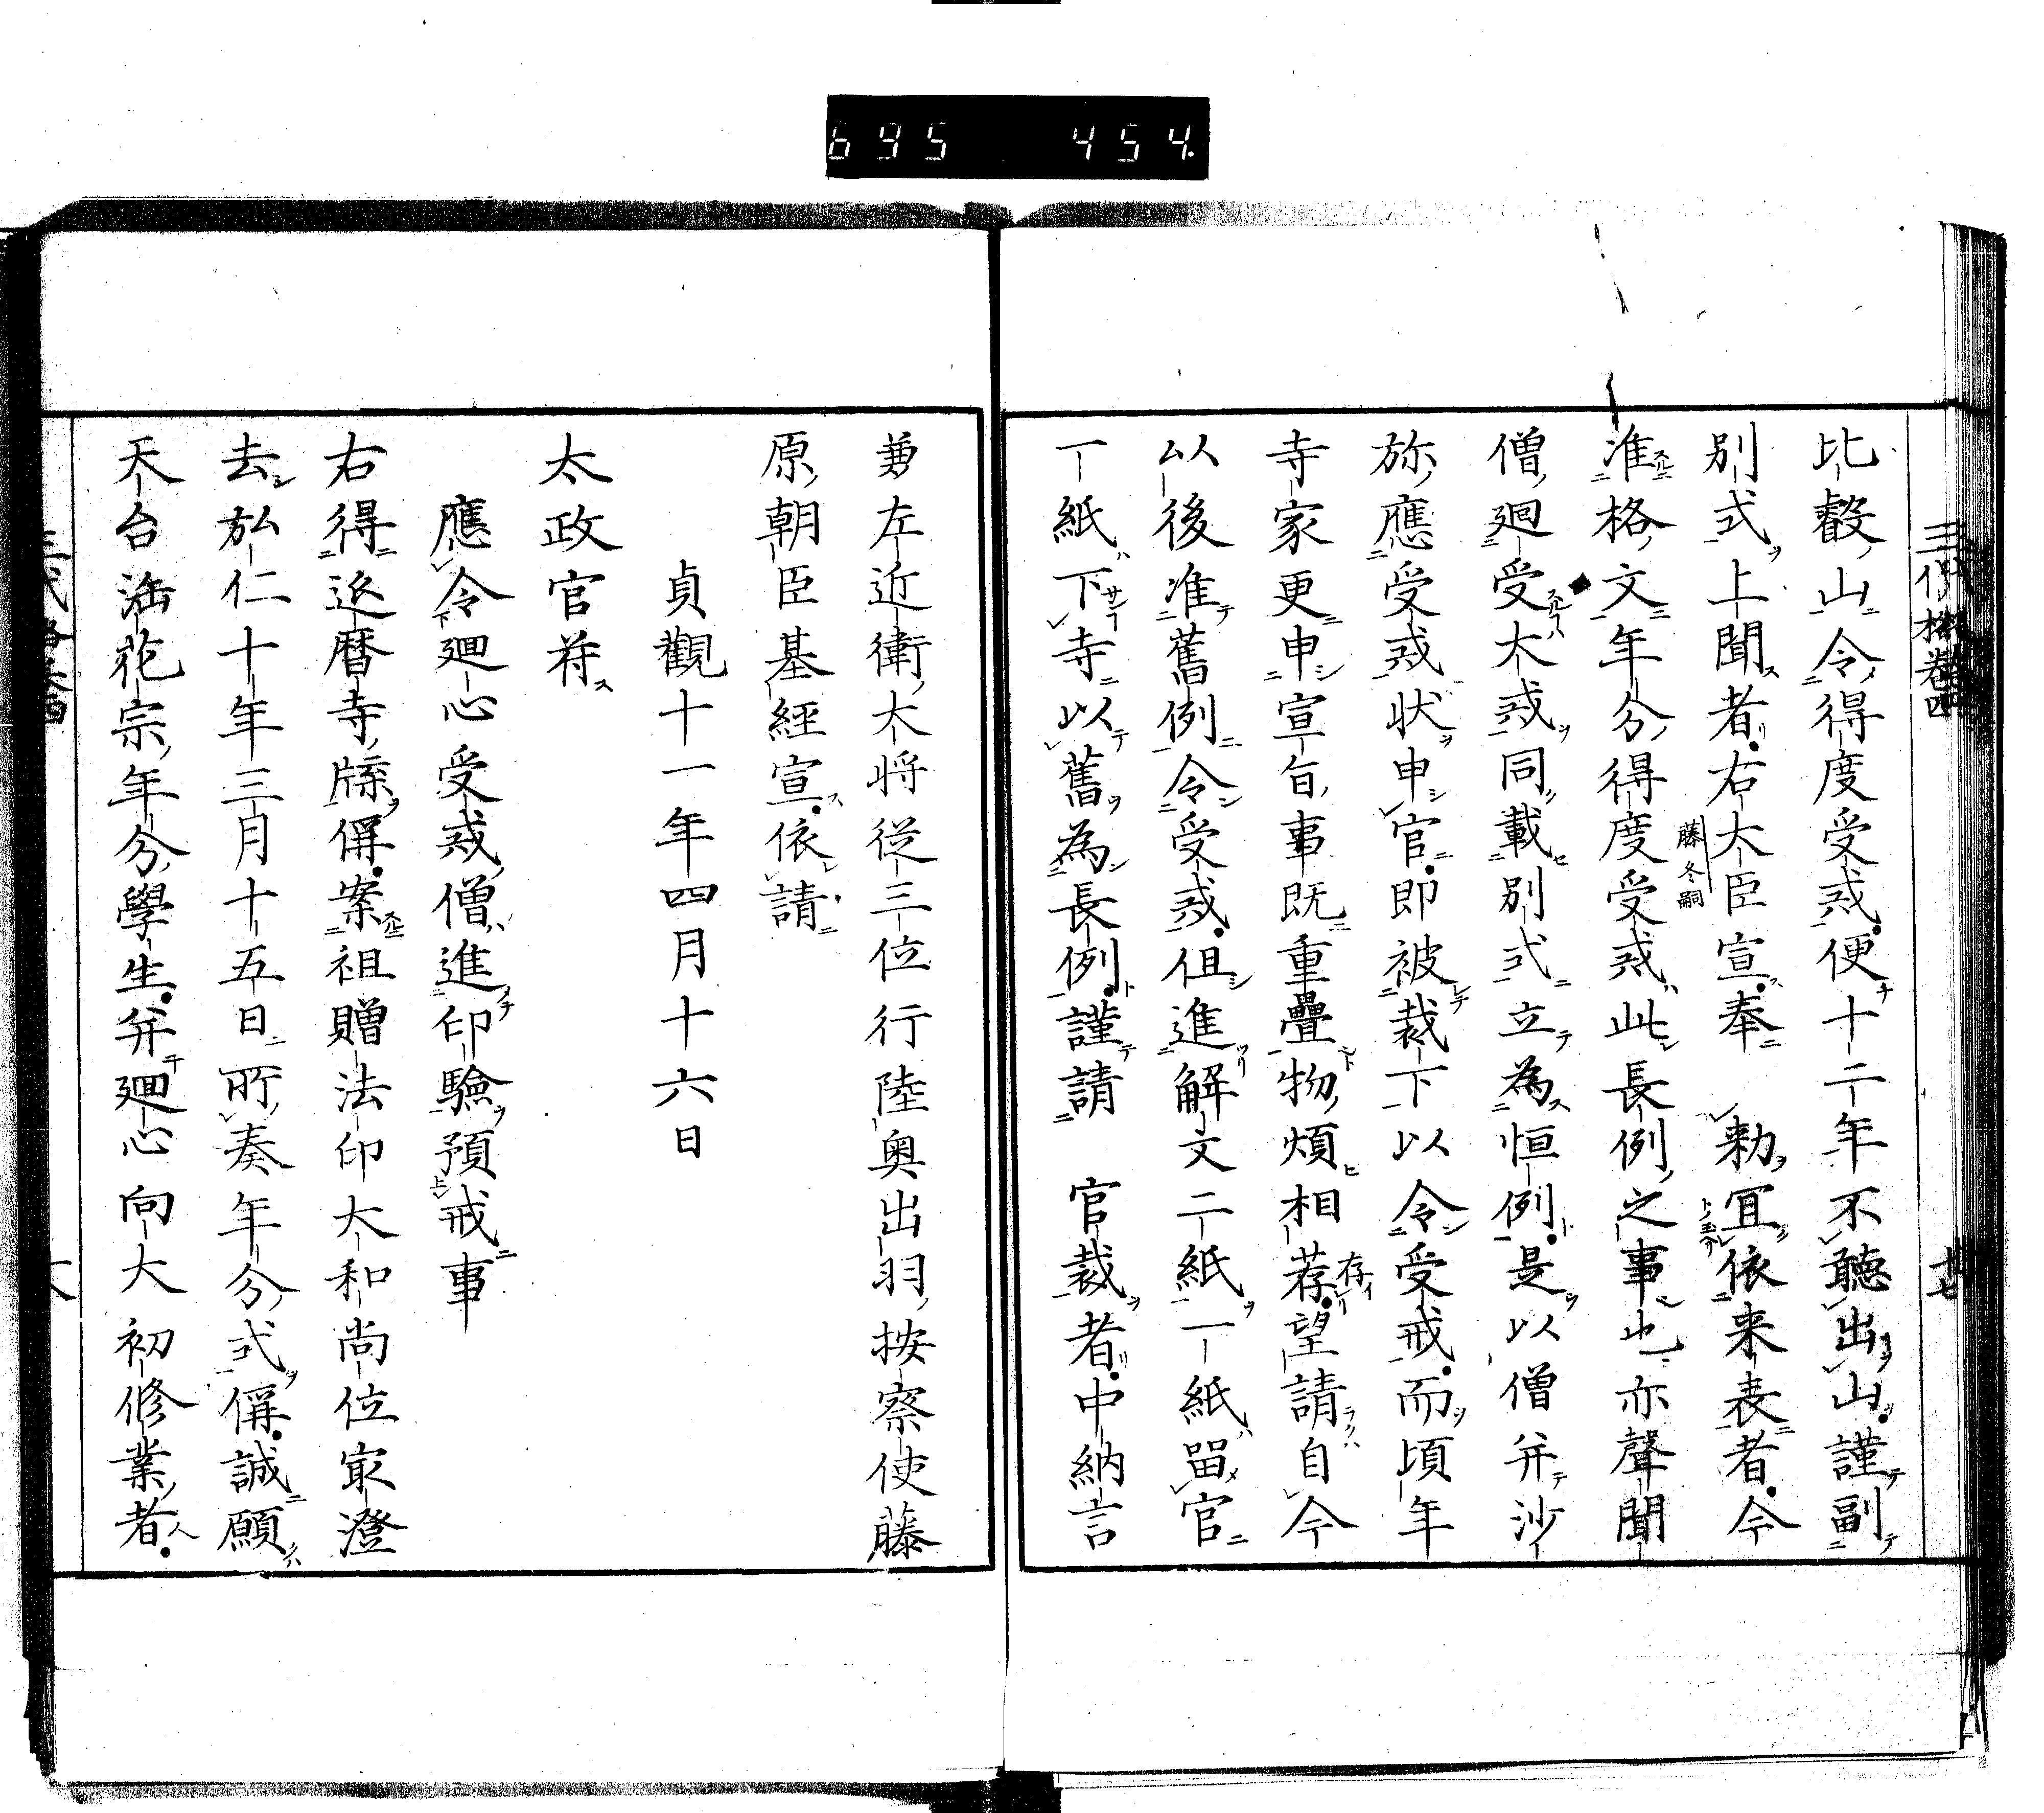 695 454
三代格卷四
廿七
比叡山令得度受戒便十二年不聽出山謹副
別式上聞者右大臣宣奉 勅宜依来表者今
藤冬嗣
准格文年分得度受戒此長例之事也亦聲聞
僧廻受大戒同載別式立為恒例是以僧并沙
弥應受戒状申官即被裁下以令受戒而頃年
寺家更申宣旨事既重疊物煩相荐望請自今
存イ
以後准舊例令受戒但進解文二紙一紙留官
一紙下寺以舊為長例謹請 官裁者中納言
兼左近衛大将従三位行陸奥出羽按察使藤
原朝臣基經宣依請
貞觀十一年四月十六日
太政官符
應令廻心受戒僧進印驗預戒事
右得延暦寺牒偁案祖贈法印大和尚位冣澄
去弘仁十年三月十五日所奏年分式偁誠願
天台法花宗年分學生并廻心向大初修業者